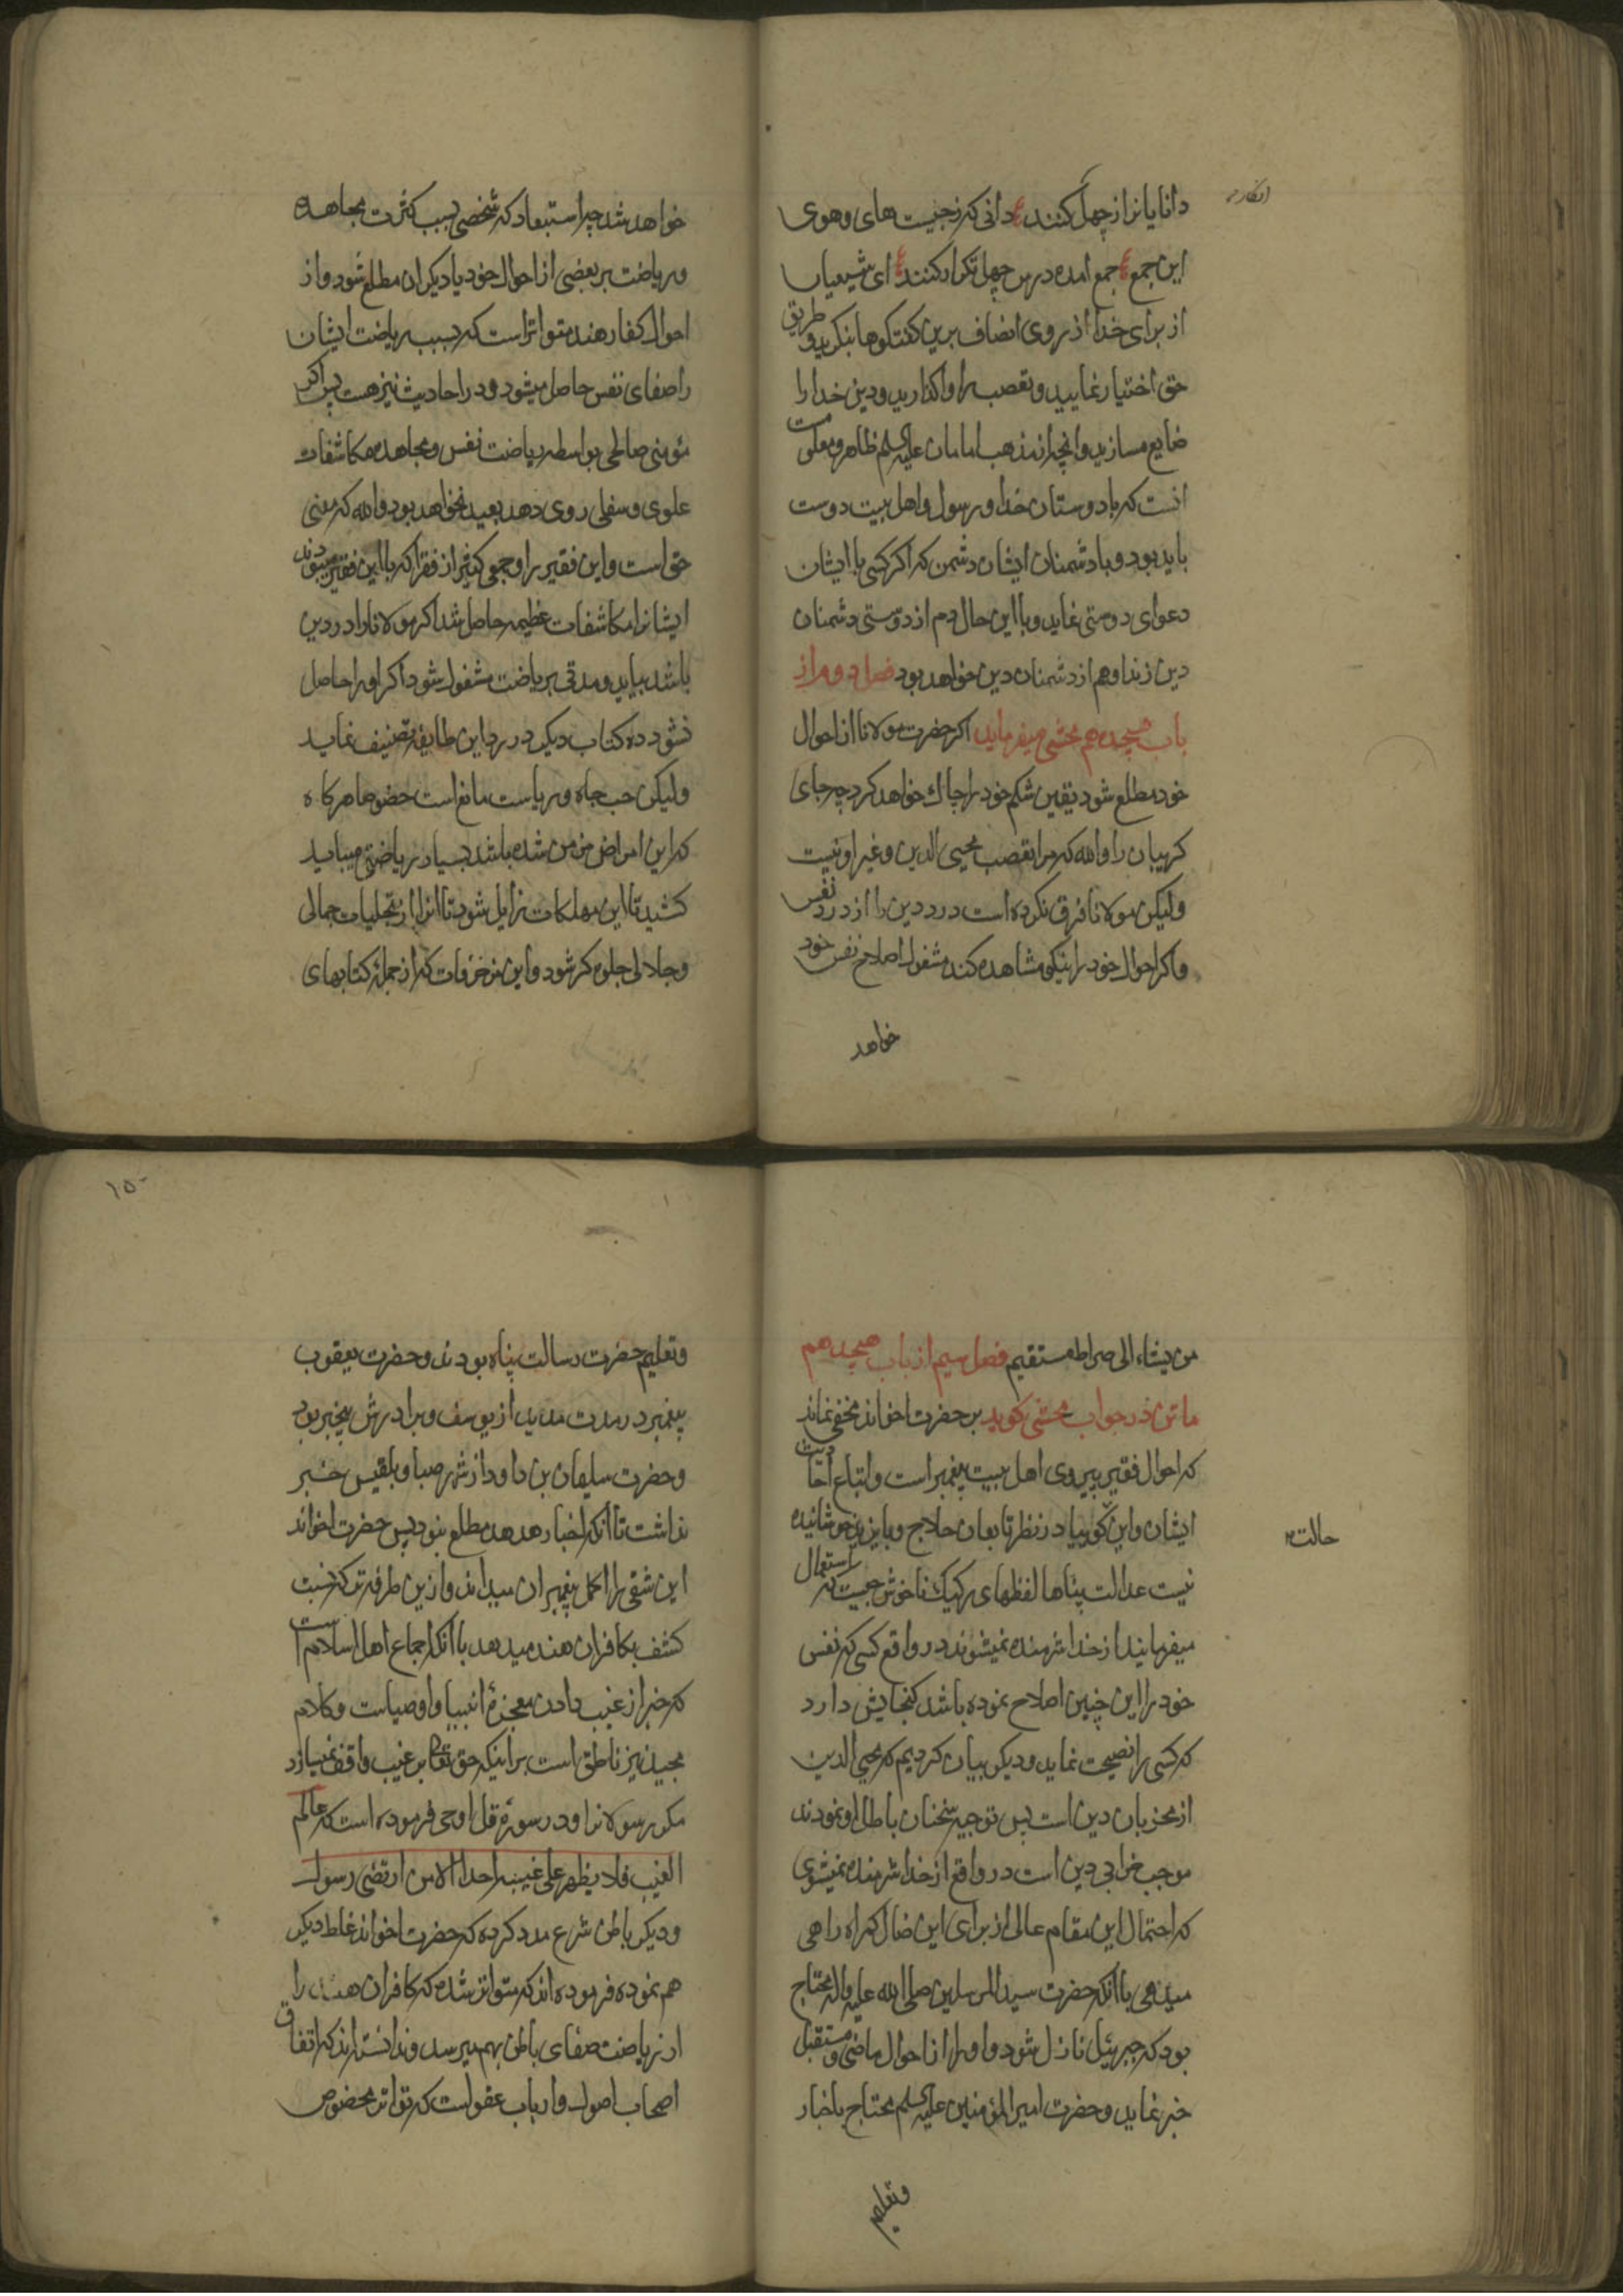 دانایانرا از چهل کنند ع دانی که زجیت های وهوی
انکار
این جمع ع جمع امده درس چهل تکرار کنند ع ای شیعیان
از برای خدا از روی انصاف برین کفتکوها بنکرید و طریق
حق اختیار نمایید و تعصب را واکذارید و دین خدا را
ضایع مسازید وانچه از مذهب امامان علیه السلم ظاهر و معلومست
انست که با دوستان خدا و رسول و اهل بیت دوست
باید بود و با دشمنان ایشان دشمن که اکر کسی با ایشان
دعوای دوستی نماید و با این حال دم از دوستی دشمنان
دین زند او هم از دشمنان دین خواهد بود فصل دوم از
باب هیجدهم محشی میفرماید اکر حضرت مولانا از احوال
خود مطلع شود یقین شکم خود را چاک خواهد کرد چه جای
کریبان را والله که مرا تعصب محیی الدین و غیر او نیست
ولیکن مولانا فرق نکرده است درد دین را از درد نفس
واکر احوال خود را نیکو مشاهده کند مشغول اصلاح نفس خود
خواهد
خواهد شد چه استبعاد که شخصی بسبب کثرت مجاهده
و ریاضت بر بعضی از احوال خود یا دیکران مطلع شود و از
احوال کفار هند متواتر است که بسبب ریاضت ایشان
را صفای نفس حاصل میشود و در احادیث نیز هست پس اکر
مؤمنی صالحی بواسطه ریاضت نفس و مجاهده مکاشفات
علوی و سفلی روی دهد بعید نخواهد بود والله که معنی
حق است و این فقیر را و جمعی کثیر از فقرا که با این فقیر میبودند
ایشانرا مکاشفات عظیمه حاصل شد اکر مولانا را درد دین
باشد بیاید و مدتی بریاضت مشغول شود اکر او را حاصل
نشود ده کتاب دیکر در رد این طایفه تصنیف نماید
ولیکن حب جاه و ریاست مانع است خصوصا هرکاه
که این امراض مزمن شده باشد بسیار ریاضتی میباید
کشید تا این مهلکات زایل شود تا انرا از تجلیات جمالی
و جلالی جلوه کر شود و این مزخرفات که از جمله کتابهای
من یشاء الی صراط مستقیم فصل سیم از باب هیجدهم
ماتن در جواب محشی کوید بر حضرت اخوند مخفی نماند
که احوال فقیر پیروی اهل بیت پیغمبر است و اتباع احادیث
ایشان و این کویا در نظر تابعان حلاج و بایزید خوشاینده
حالت
نیست عدالت پناها لفظهای رکیک ناخوش چیست که استعمال
میفرمایند از خدا شرمنده نمیشوند در واقع کسی که نفس
خود را این چنین اصلاح نموده باشد کنجایش دارد
که کسی را نصیحت نماید و دیکر بیان کردیم که محیی الدین
از مخربان دین است پس توجیه سخنان باطل او نمودند
موجب خرابی دین است در واقع از خدا شرمنده نمیشوی
که احتمال این مقام عالی از برای این ضال کمراه راهی
میدهی با آنکه حضرت سید المرسلین صلی الله علیه واله محتاج
بود که جبرئیل نازل شود و او را از احوال ماضی و مستقبل
خبر نماید و حضرت امیر المؤمنین علیه السلم محتاج باخبار
وتعلیم
۱۵۰
وتعلیم حضرت رسالت پناه بودند و حضرت یعقوب
پیغمبر در مدت مدید از یوسف و برادرش بیخبر بود
و حضرت سلیمان بن داود از شهر صبا و بلقیس خبر
نداشت تا آنکه باخبار هدهد مطلع نبود پس حضرت اخواند
این شقی را اکمل پیغمبران میداند و ازین طرفه تر که نسبت
کشف بکافران هند میدهد با آنکه اجماع اهل اسلام است
که خبر از غیب دادن معجزهٔ انبیا و اوصیاست و کلام
مجید نیز ناطق است بر اینکه حق تعالی بر غیب واقف نمیسازد
مکر رسولانرا و در سورهٔ قل اوحی فرموده است که عالم
الغیب فلا یظهر علی غیبه احدا الا من ارتضی رسول
و دیکر باطن شرع مدد کرده که حضرت اخواند غلط دیکر
هم نموده فرموده اند که متواتر شده که کافران هند را
از ریاضت صفای باطن بهم میرسد و ندانسته اند که اتفاق
اصحاب اصول و ارباب عقولست که تواتر مخصوص